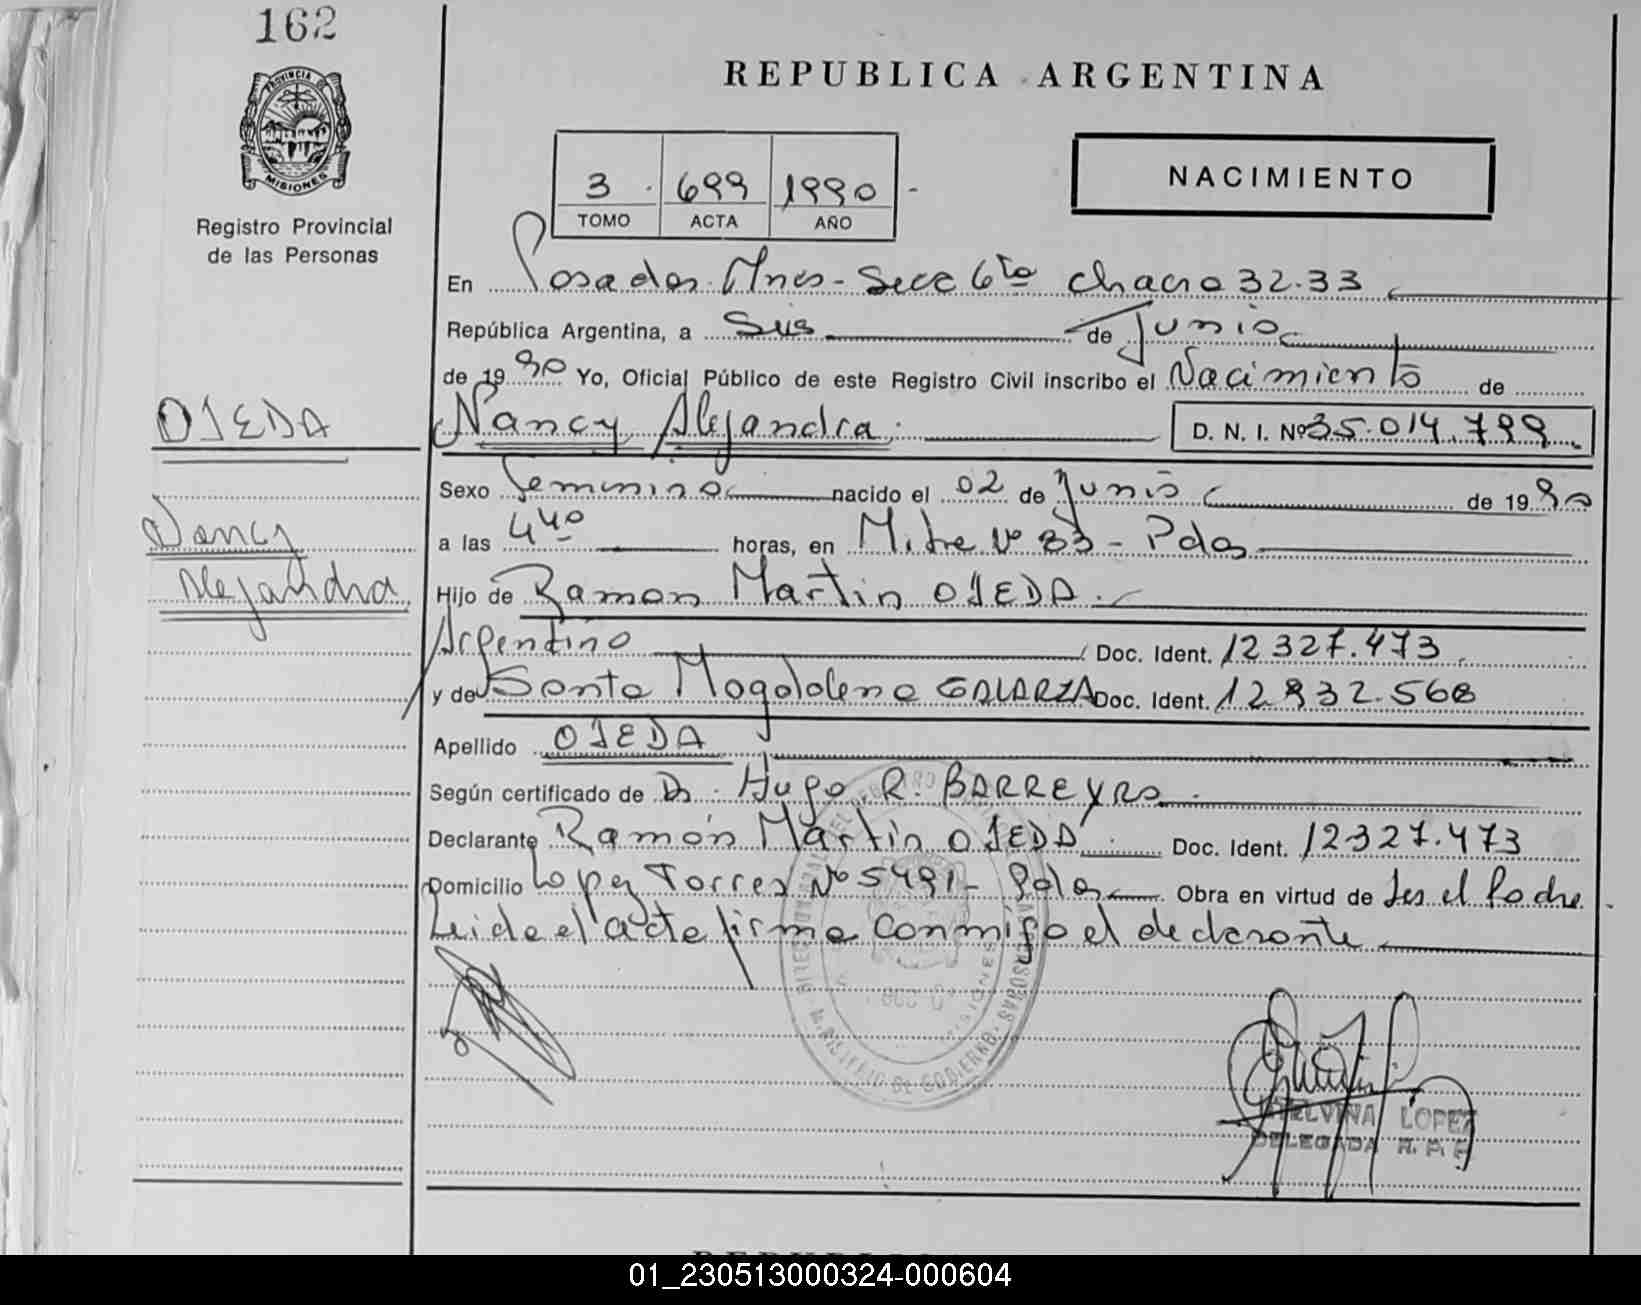 162
PROVINCIA DE
MISIONES
Registro Provincial
de las Personas
REPUBLICA ARGENTINA
3 699 1990
TOMO ACTA AÑO
NACIMIENTO
En Posadas Mnes - Secc 6ta Chacra 32-33
República Argentina, a Seis de Junio
de 1990 Yo, Oficial Público de este Registro Civil inscribo el Nacimiento de
OJEDA
Nancy Alejandra. D. N. I. Nº 35.014.799
Sexo Femenino nacido el 02 de Junio de 1990
Nancy
a las 4 40 horas, en Mitre Nº 33 - Pdas
Alejandra
Hijo de Ramon Martin OJEDA.
Argentino Doc. Ident. 12 327.473
y de Santa Magdalena GALARZA Doc. Ident. 12.932.568
Apellido OJEDA
Según certificado de Dr. Hugo R. BARREYRO.
Declarante Ramón Martin OJEDA Doc. Ident. 12327.473
Domicilio Lopez Torres Nº 5491 - Pdas Obra en virtud de Ser el Padre
Leida el acta firma conmigo el declarante
MINISTERIO DE GOBIERNO
MISIONES
ETELVINA LOPEZ
DELEGADA R. P. P.
01_230513000324-000604